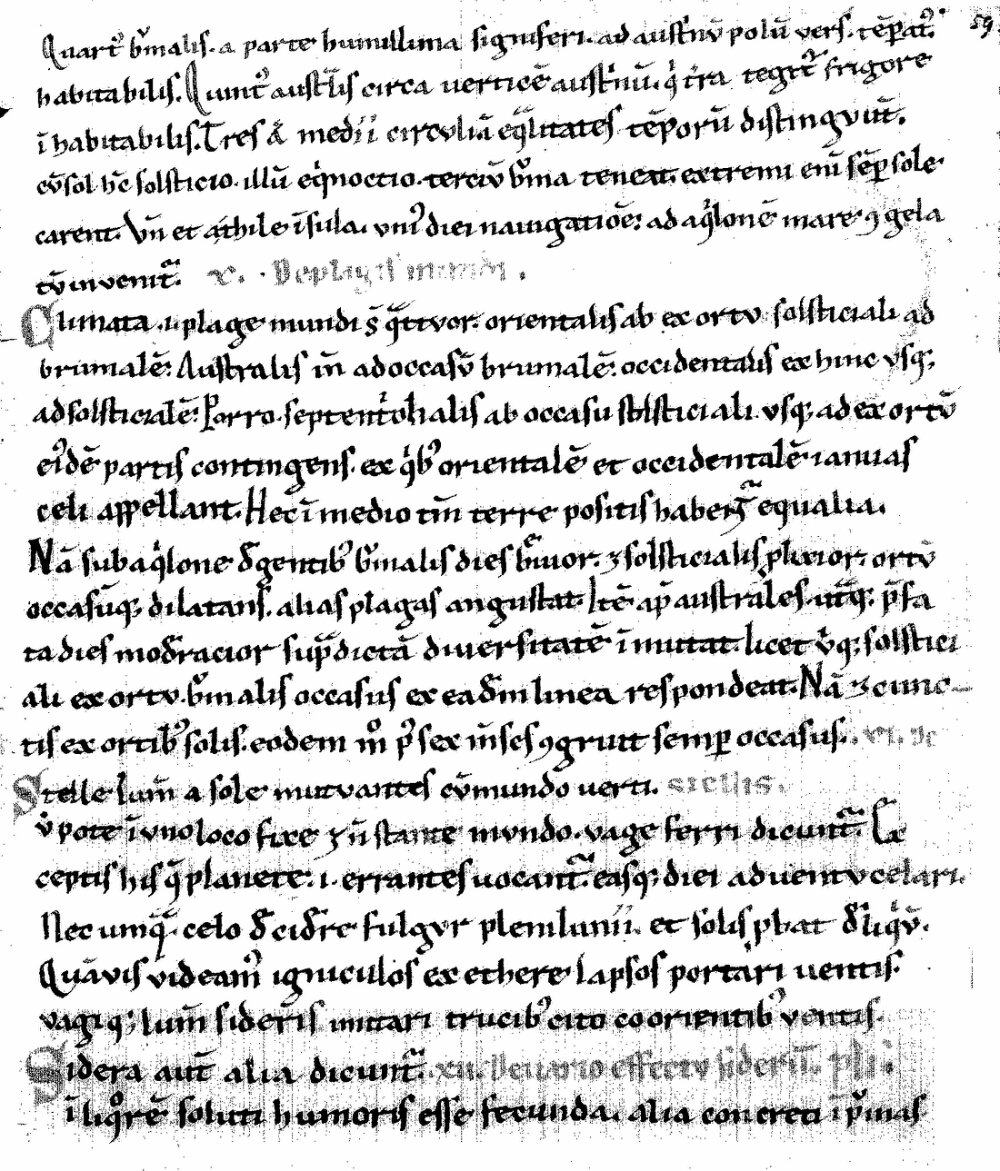 59
Quart᾽ b᷒malis. a parte humillima signiferi. ad austrinū polū vers. tēpat᾽.
habitabilis. Quint᾽ austͣlis circa uerticē austͥnū. qͥ tr̄a tegit᷒ frigore
īhabitabilis. Tres aͫ medii circuli ā eqͣlitates tēporū distinguūt.
cū sol hͨ solsticio. illū eqͥnoctio. terciū bͫma teneat. extremi enī sēp sole
carent. Vn̄ et a thile īsula. uni᾽ diei nauigatiōe: ad aqͥlonē mare ꝯgela
tū inuenit᷒. x. De plagis mundi.
Climata .i. plage mundi s̄ qͣttuor. orientalis ab exortu solsticiali ad
brumalē: Australis in̄ ad occasū brumalē: occidentalis ex hinc usq;
ad solsticialē: Porro septentͥonalis ab occasu solsticiali. usq; ad exortū
ei᾽dē partis contingens. ex qͥb᾽ orientalē et occidentalē ianuas
celi appellant. Hec ī medio tm̄ terre positis habent᷒ equalia.
Nā sub aqͥlone degentib᾽ bͫmalis dies bͤuior. ⁊ solsticialis plixior. ortū
occasūq; dilatans. alias plagas angustat. Itē ap̄ australes. utͣq; p̄fa
ta dies moderacior sup̄dictā diuersitatē īmutat. licet uͥq; solstici
ali exortu. bͫmalis occasus ex eadem linea respondeat. Nā ⁊ cunc
tis exortib᾽ solis. eodem mͦ p᷒ sex m̄ses ꝯgruit semꝑ occasus. xi. De
Stelle lum̄ a sole mutuantes cū mundo uerti. stellis.
ūpote ī uno loco fixe ⁊ n̄ stante mundo. uage ferri dicunt᷒. Ex
ceptis his qͣ planete .i. errantes uocant᷒. easq; diei aduentu celari.
Nec umqͣ celo decidere fulgur plenilunii. et solis ꝓbat deliqͥū.
Quāuis uideam᾽ igniculos ex ethere lapsos portari uentis.
vagiq; lum̄ sideris imitari trucib᾽ cito coorientib᾽ uentis.
Sidera aut̄ alia dicunt᷒. xii. De uario effectu siderū. plī.
ī liqͦrē soluti humoris esse fecunda. alia concreti ī pͥuinas